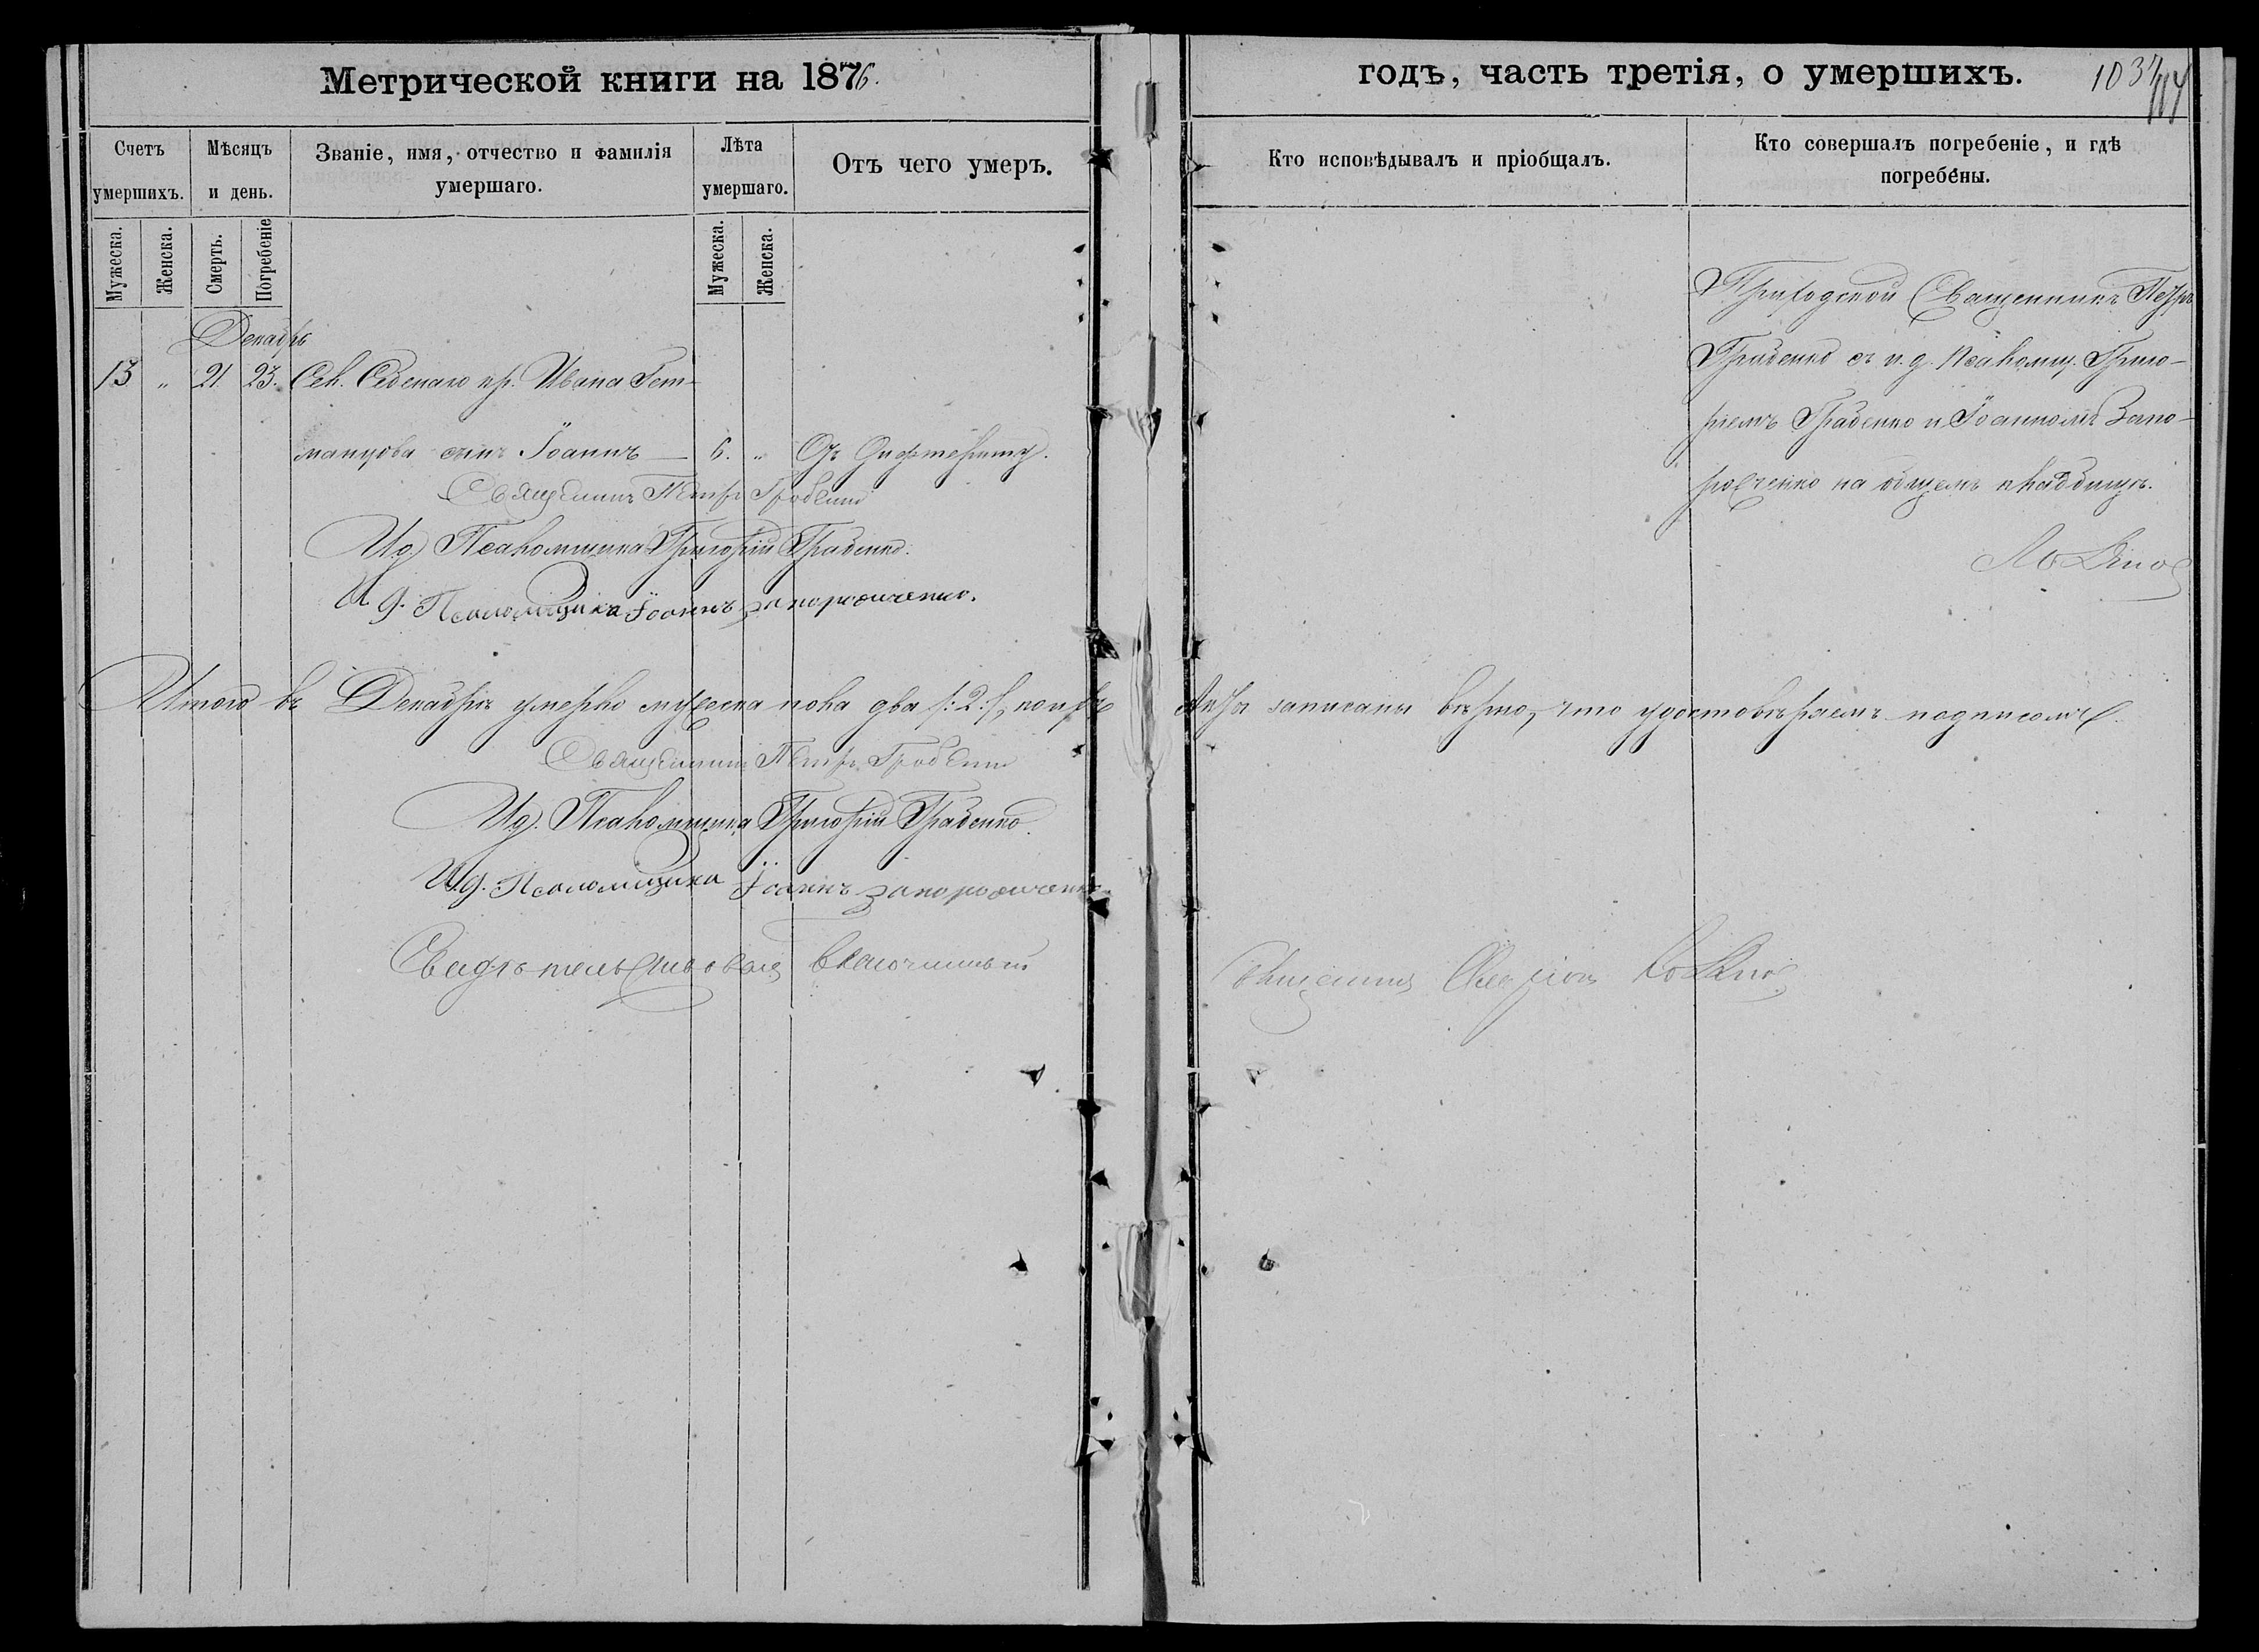 Метрической книги на 1876.
годъ, часть третія, о умершихъ.
103
Счетъ умершихъ.
Мѣсяцъ и день.
Званіе, имя, отчество и фамилія умершаго.
Лѣта умершаго.
Отъ чего умеръ.
Кто исповѣдывалъ и пріобщалъ.
Кто совершалъ погребеніе, и гдѣ погребены.
Мужеска.
Женска.
Смерть.
Погребеніе
Мужеска.
Женска.
Декабрь
13 „ 21. 23. Сел. кр. Ивана Гет-
манцова сынъ Іоаннъ — 6. „ Отъ Дифтерита.
Приходской Священникъ Петръ
Грабенко съ и. д. Псаломщ. Григо-
ріемъ Грабенко и Іоанномъ Запо-
рожченко на общемъ кладбищѣ.
Священникъ Петръ Грабенко
И.д. Псаломщика Григорій Грабенко.
И.д. Псаломщика Іоаннъ Запорожченко.
Итого въ Декабрѣ умерло мужеска пола два /:2:/, копѣ записаны вѣрно, что удостовѣряемъ подписомъ.
Священникъ Петръ Грабенко
И.д. Псаломщика Григорій Грабенко.
И.д. Псаломщика Іоаннъ Запорожченко.
Свидѣтельствовалъ благочинный Священникъ